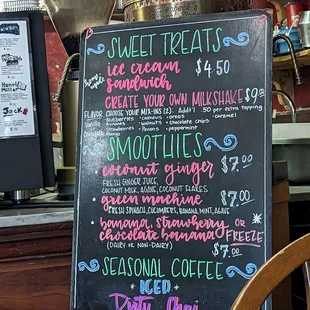 SWEET TREATS
home made
ice cream $4.50
sandwich
CREATE YOUR OWN MILKSHAKE $9
FLAVOR
CHOOSE YOUR MIX-INS (2): Add'l .50 per extra topping
Blueberries • cashews • Oreos • caramel
Bananas • walnuts • chocolate chips
Strawberries • Pecans • peppermint
SMOOTHIES
coconut ginger $7.00
FRESH GINGER JUICE
COCONUT MILK, AGAVE, COCONUT FLAKES
green machine $7.00
FRESH SPINACH, CUCUMBERS, BANANA, MINT, AGAVE
banana, strawberry or
chocolate banana FREEZE
(DAIRY or NON-DAIRY) $7.00
SEASONAL COFFEE
ICED
Dirty Chai
Jack